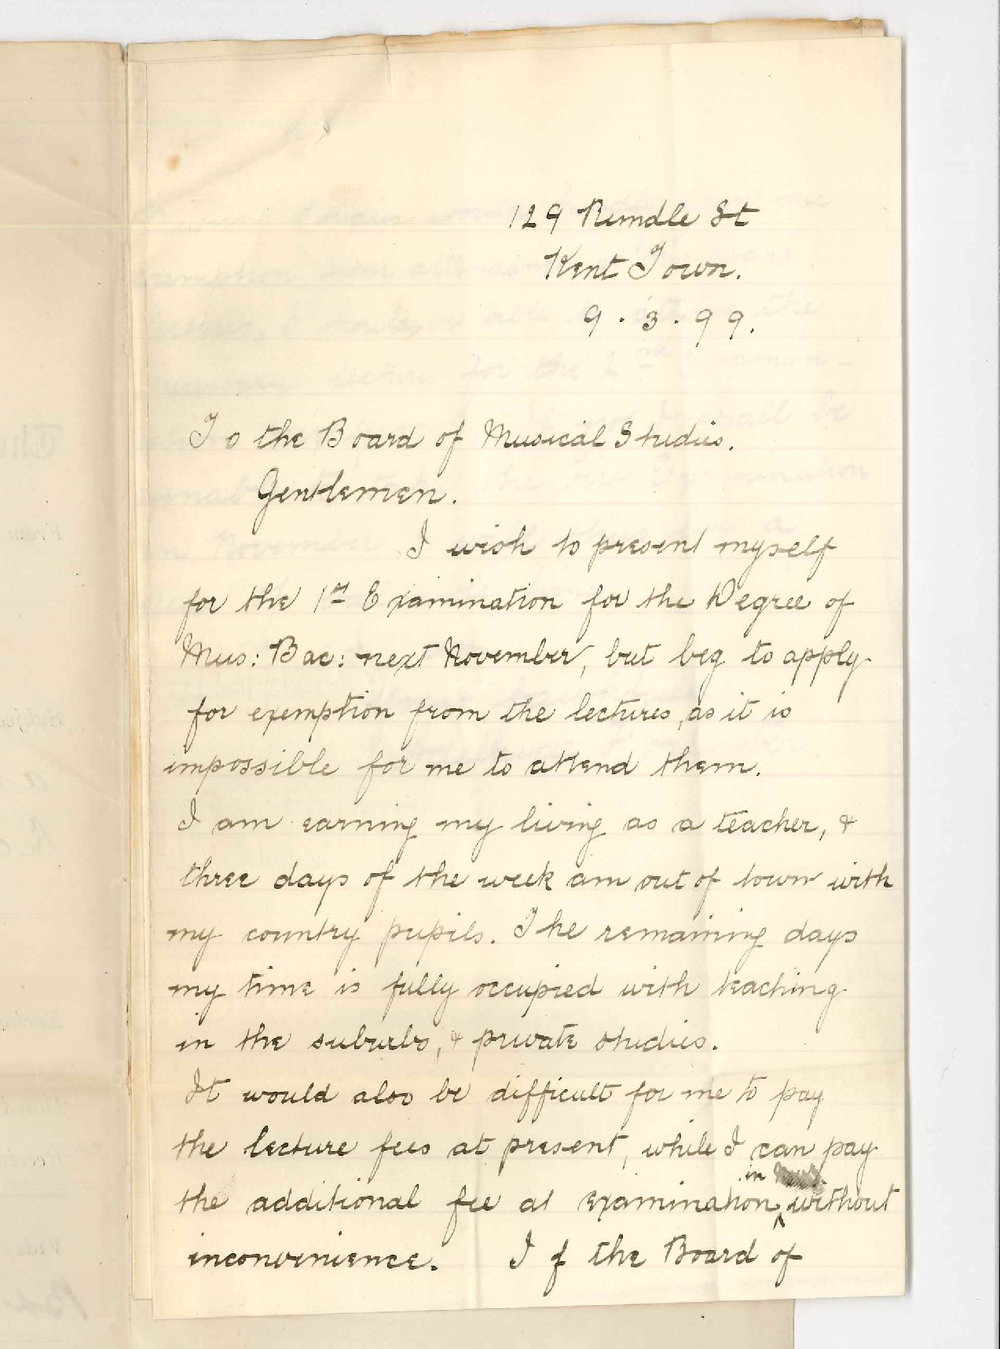 129 Rundle St
Kent Town.
9.3.99.
To the Board of Musical Studies.
Gentlemen.
I wish to present myself
for the 1st Examination for the Degree of
Mus: Bac: next November, but beg to apply
for exemption from the lectures, as it is
impossible for me to attend them.
I am earning my living as a teacher, &
three days of the week am out of town with
my country pupils. The remaining days
my time is fully occupied with teaching
in the suburbs, & private studies.
It would also be difficult for me to pay
the lecture fees at present, while I can pay
the additional fee at examination in without
inconvenience. If the Board of